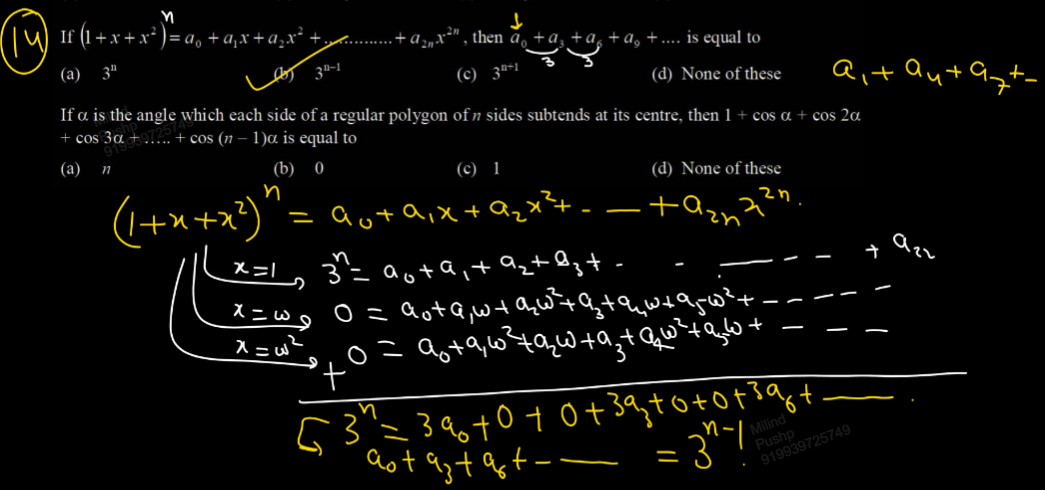 14
If (1 + x + x²)ⁿ = a₀ + a₁x + a₂x² + ............. + a₂ₙx²ⁿ, then a₀ + a₃ + a₆ + a₉ + .... is equal to
3 3
(a) 3ⁿ (b) 3ⁿ⁻¹ (c) 3ⁿ⁺¹ (d) None of these
a₁ + a₄ + a₇ + -
If α is the angle which each side of a regular polygon of n sides subtends at its centre, then 1 + cos α + cos 2α
+ cos 3α + ..... + cos (n – 1)α is equal to
(a) n (b) 0 (c) 1 (d) None of these
(1+x+x²)ⁿ = a₀ + a₁x + a₂x² + - — + a₂ₙx²ⁿ.
x=1 3ⁿ = a₀ + a₁ + a₂ + a₃ + - - — - - - + a₂₂
x=ω 0 = a₀ + a₁ω + a₂ω² + a₃ + a₄ω + a₅ω² + - - - - -
x=ω² + 0 = a₀ + a₁ω² + a₂ω + a₃ + a₄ω² + a₅ω + - - -
3ⁿ = 3a₀ + 0 + 0 + 3a₃ + 0 + 0 + 3a₆ + — .
a₀ + a₃ + a₆ + - — = 3ⁿ⁻¹.
Milind
Pushp
919939725749
Milind
Pushp
919939725749